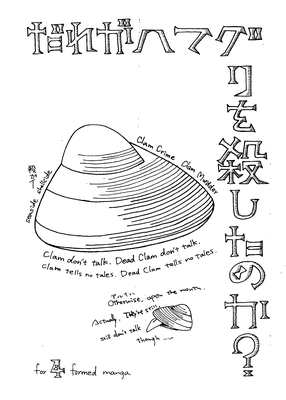 だれがハマグリを殺したのか?
Clam Crime Clam Murder
seaside shellside
Clam don't talk. Dead Clam don't talk.
Clam tells no tales. Dead Clam tells no tales.
Otherwise, open the mouth.
Actually, They're still
still don't talk
though
for 4 formed manga